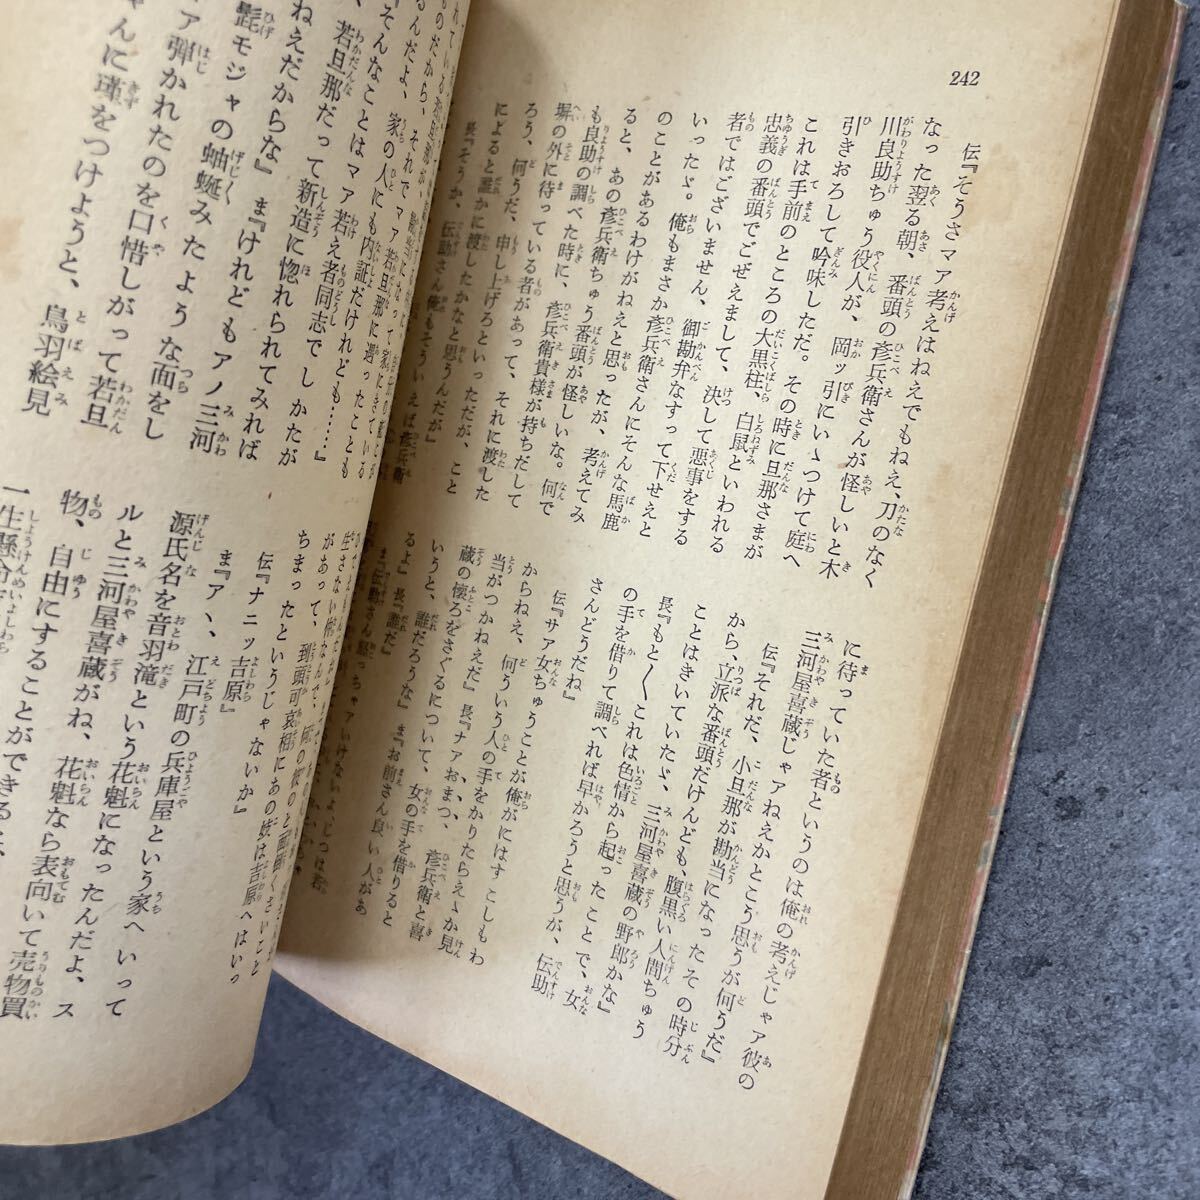 242
伝『そうさマア考えはねえでもねえ、刀のなく
なった翌る朝、番頭の彦兵衛さんが怪しいと木
川良助ちゅう役人が、岡ッ引にいゝつけて庭へ
引きおろして吟味しただ。その時に旦那さまが
これは手前のところの大黒柱、白鼠といわれる
忠義の番頭でごぜえまして、決して悪事をする
者ではございません、御勘弁なすって下せえと
いったゞ。俺もまさか彦兵衛さんにそんな馬鹿
のことがあるわけがねえと思ったが、考えてみ
ると、あの彦兵衛ちゅう番頭が怪しいな。何で
も良助の調べた時に、彦兵衛貴様が持ちだして
塀の外に待っている者があって、それに渡した
ろう、何うだ、申し上げろといっただが、こと
によると誰かに渡したかなと思うんだが』
長『そうか、伝助さん俺もそういえば彦兵衛
に待っていた者というのは俺の考えじゃア彼の
三河屋喜蔵じゃアねえかとこう思うが何うだ』
伝『それだ、小旦那が勘当になったその時分
から、立派な番頭だけんども、腹黒い人間ちゅう
ことはきいていたゞ、三河屋喜蔵の野郎かな』
長『もと〳〵これは色情から起ったことで、女
の手を借りて調べれば早かろうと思うが、伝助
さんどうだね』
伝『サア女ちゅうことが俺がにはすこしもわ
からねえ、何ういう人の手をかりたらえゝか見
当がつかねえだ』長『ナアおまつ、彦兵衛と喜
蔵の懐ろをさぐるについて、女の手を借りると
いうと、誰だろうな』ま『お前さん良い人があ
るよ』長『誰だ』
ま『伝助さん怒っちゃアいけないよ、じつは若
家の人にも内証だけれども……』
若旦那だって新造に惚れられてみれば
ねえだからな』ま『けれどもアノ三河
髭モジャの蚰蜒みたような面をし
ア弾かれたのを口惜しがって若旦
ゃんに瑾をつけようと、鳥羽絵見
があって、到頭可哀相にあの妓は吉原へはいっ
ちまったというじゃないか』
伝『ナニッ吉原』
ま『アヽ、江戸町の兵庫屋という家へいって
源氏名を音羽滝という花魁になったんだよ、ス
ルと三河屋喜蔵がね、花魁なら表向いて売物買
物、自由にすることができるよ、